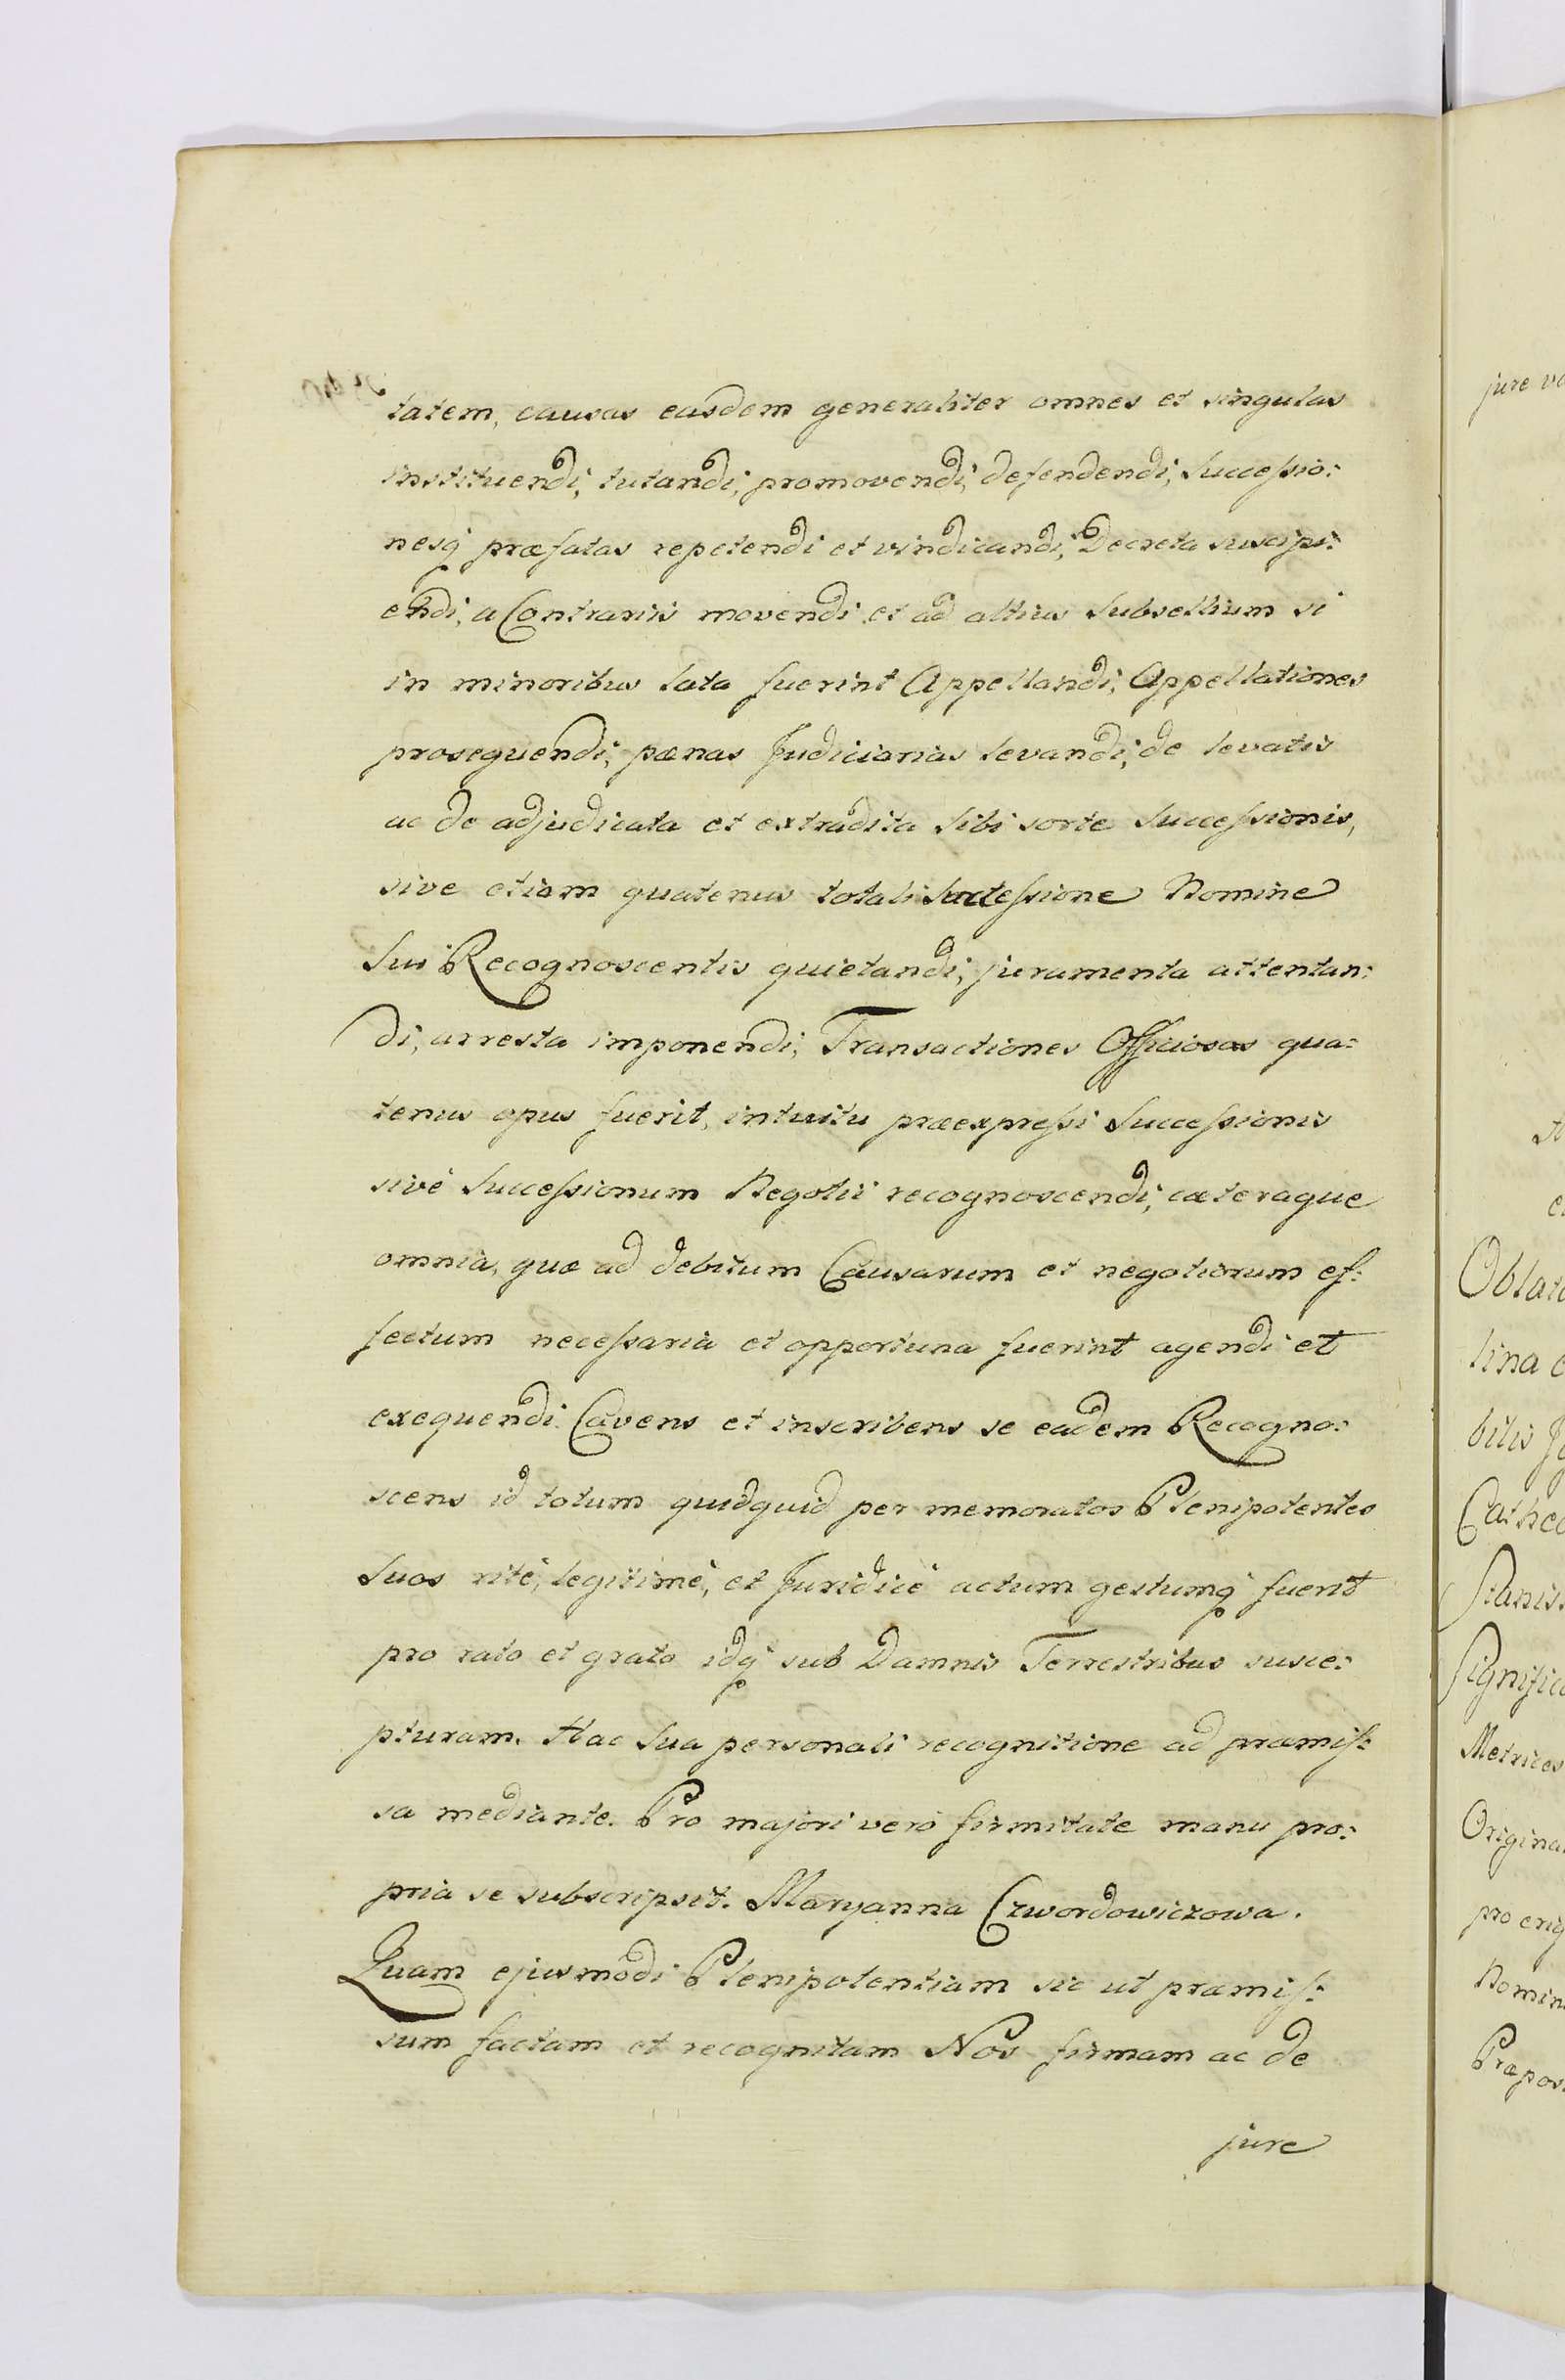 tatem, causas easdem generaliter omnes et singulas
instituendi, tutandi, promovendi, defendendi, Successio:
nesq́ præfatas repetendi et vindicandi, Decreta suscipi:
endi, a Contrariis movendi et ad altius Subsellium si
in minoribus lata fuerint Appellandi, Appellationes
prosequendi, pænas Judiciarias levandi, de levatis
ac de adjudicata et extradita Sibi sorte Successionis,
sive etiam quatenus totali Successione Nomine
Sui Recognoscentis quietandi, juramenta attentan:
di, arresta imponendi, Transactiones Officiosas qua:
tenus opus fuerit, intuitu præexpressi Successionis
sivè Successionum Negotii recognoscendi, cæteraque
omnia, quæ ad debitum Causarum et negotiorum ef:
fectum necessaria et opportuna fuerint agendi et
exequendi. Cavens et inscribens se eadem Recogno:
scens id totum quidquid per memoratos Plenipotentes
Suos ritè, legitimè, et Juridicè actum gestumq́ fuerit
pro rato et grato idq́ sub Damnis Terrestribus susce:
pturam. Hac Sua personali recognitione ad præmis:
sa mediante. Pro majori verò firmitate manu pro:
pria se subscripsit. Maryanna Czwordowiczowa.
Quam ejusmodi Plenipotentiam sic ut præmis:
sum factam et recognitam Nos firmam ac de
jure
jure
Oblat
tina
bilis
Cathed
Stanis
Signific
Metrices
Origina
pro orig
Nomin
Præpos